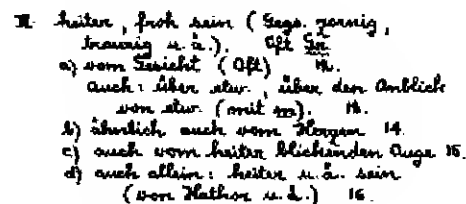 II. heiter, froh sein (Gegs. zornig,
traurig u. ä.). Oft Gr.
a) vom Gesicht (Oft)
auch: über etw., über den Anblick
von etw. (mit m). 13.
b) ähnlich auch vom Herzen 14.
c) auch vom heiter blickenden Auge 15.
d) auch allein: heiter u. ä. sein
(von Hathor u. ä.) 16.